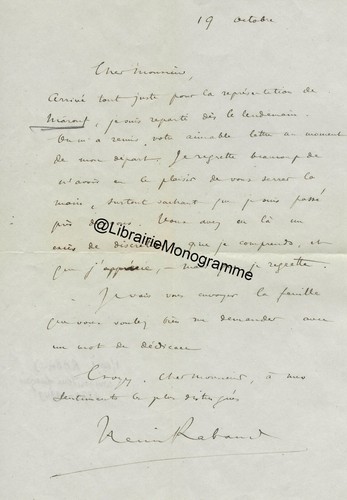 19 octobre
Cher Monsieur,
Arrivé tout juste pour la représentation de
Marouf, je suis reparti dès le lendemain.
On m'a remis votre aimable lettre au moment
de mon départ. Je regrette beaucoup de
n'avoir eu le plaisir de vous serrer la
main, surtout sachant que je suis passé
près de vous. Vous avez eu là un
excès de que je comprends, et
que j'apprécie, – je regrette.
Je vais vous envoyer la feuille
que vous voulez bien me demander avec
un mot de dédicace
Croyez, cher Monsieur, à mes
sentiments les plus distingués
Henri Rabaud
@LibrairieMonogramme